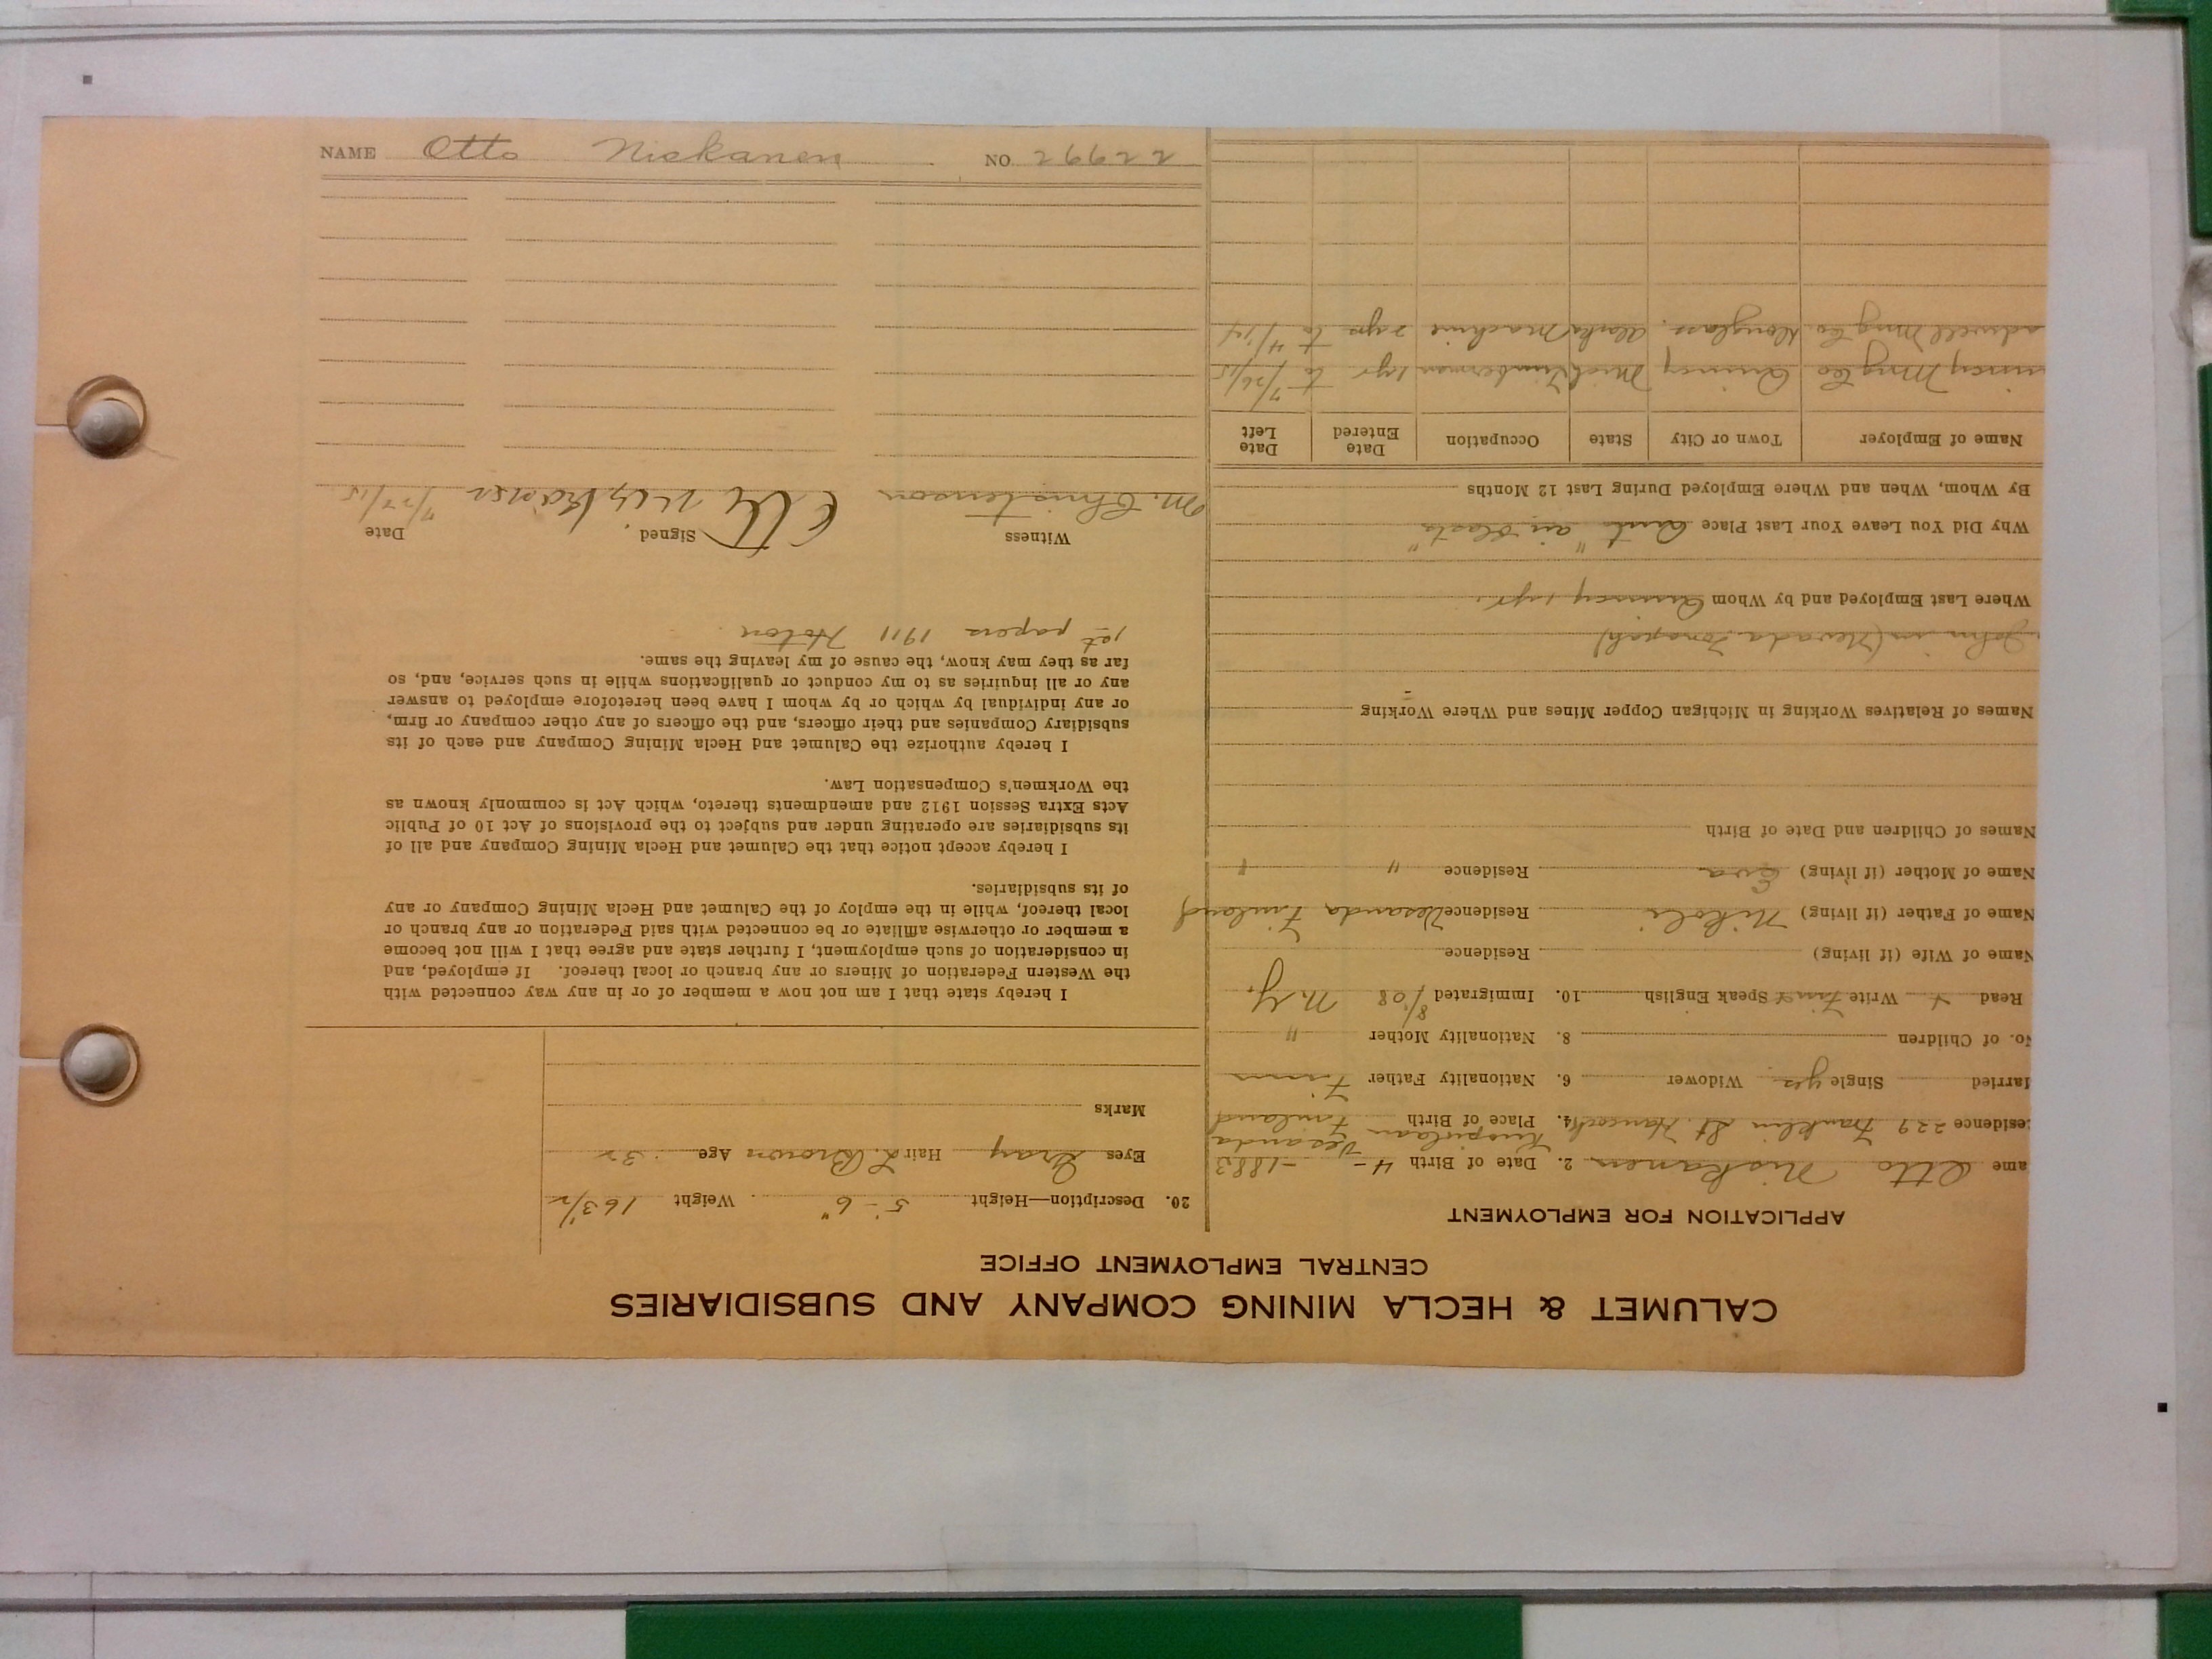 CALUMET & HECLA MINING COMPANY AND SUBSIDIARIES
CENTRAL EMPLOYMENT OFFICE
APPLICATION FOR EMPLOYMENT
ame Otto Niskanen 2. Date of Birth 4 - - 1883
esidence 229 Franklin St. Hancock 4. Place of Birth Finland
arried Single yes Widower 6. Nationality Father Finn
o. of Children 8. Nationality Mother "
Read Write Speak English 10. Immigrated 8/08 N.Y.
Name of Wife (if living) Residence
Name of Father (if living) Nikoli Residence Vesanda Finland
Name of Mother (if living) Eva Residence " "
Names of Children and Date of Birth
Names of Relatives Working in Michigan Copper Mines and Where Working
John in (Nevada Tonopah)
Where Last Employed and by Whom Quincy 1 yr.
Why Did You Leave Your Last Place "air blasts"
By Whom, When and Where Employed During Last 12 Months
Name of Employer Town or City State Occupation Date Entered Date Left
uincy Mng Co Quincy Mich Timberman 1 yr to 7/26/15
adwell Mng Co Douglass. Alaska Machine 2 yrs to 4/14
20. Description—Height 5'-6" Weight 163 1/2
Eyes Gray Hair L. Brown Age 32
Marks
I hereby state that I am not now a member of or in any way connected with
the Western Federation of Miners or any branch or local thereof. If employed, and
in consideration of such employment, I further state and agree that I will not become
a member or otherwise affiliate or be connected with said Federation or any branch or
local thereof, while in the employ of the Calumet and Hecla Mining Company or any
of its subsidiaries.
I hereby accept notice that the Calumet and Hecla Mining Company and all of
its subsidiaries are operating under and subject to the provisions of Act 10 of Public
Acts Extra Session 1912 and amendments thereto, which Act is commonly known as
the Workmen's Compensation Law.
I hereby authorize the Calumet and Hecla Mining Company and each of its
subsidiary Companies and their officers, and the officers of any other company or firm,
or any individual by which or by whom I have been heretofore employed to answer
any or all inquiries as to my conduct or qualifications while in such service, and, so
far as they may know, the cause of my leaving the same.
1st papers 1911 Hoton
Witness Signed Date
M. Christenson Otto Niskanen 7/27/15
NAME Otto Niskanen NO. 26622